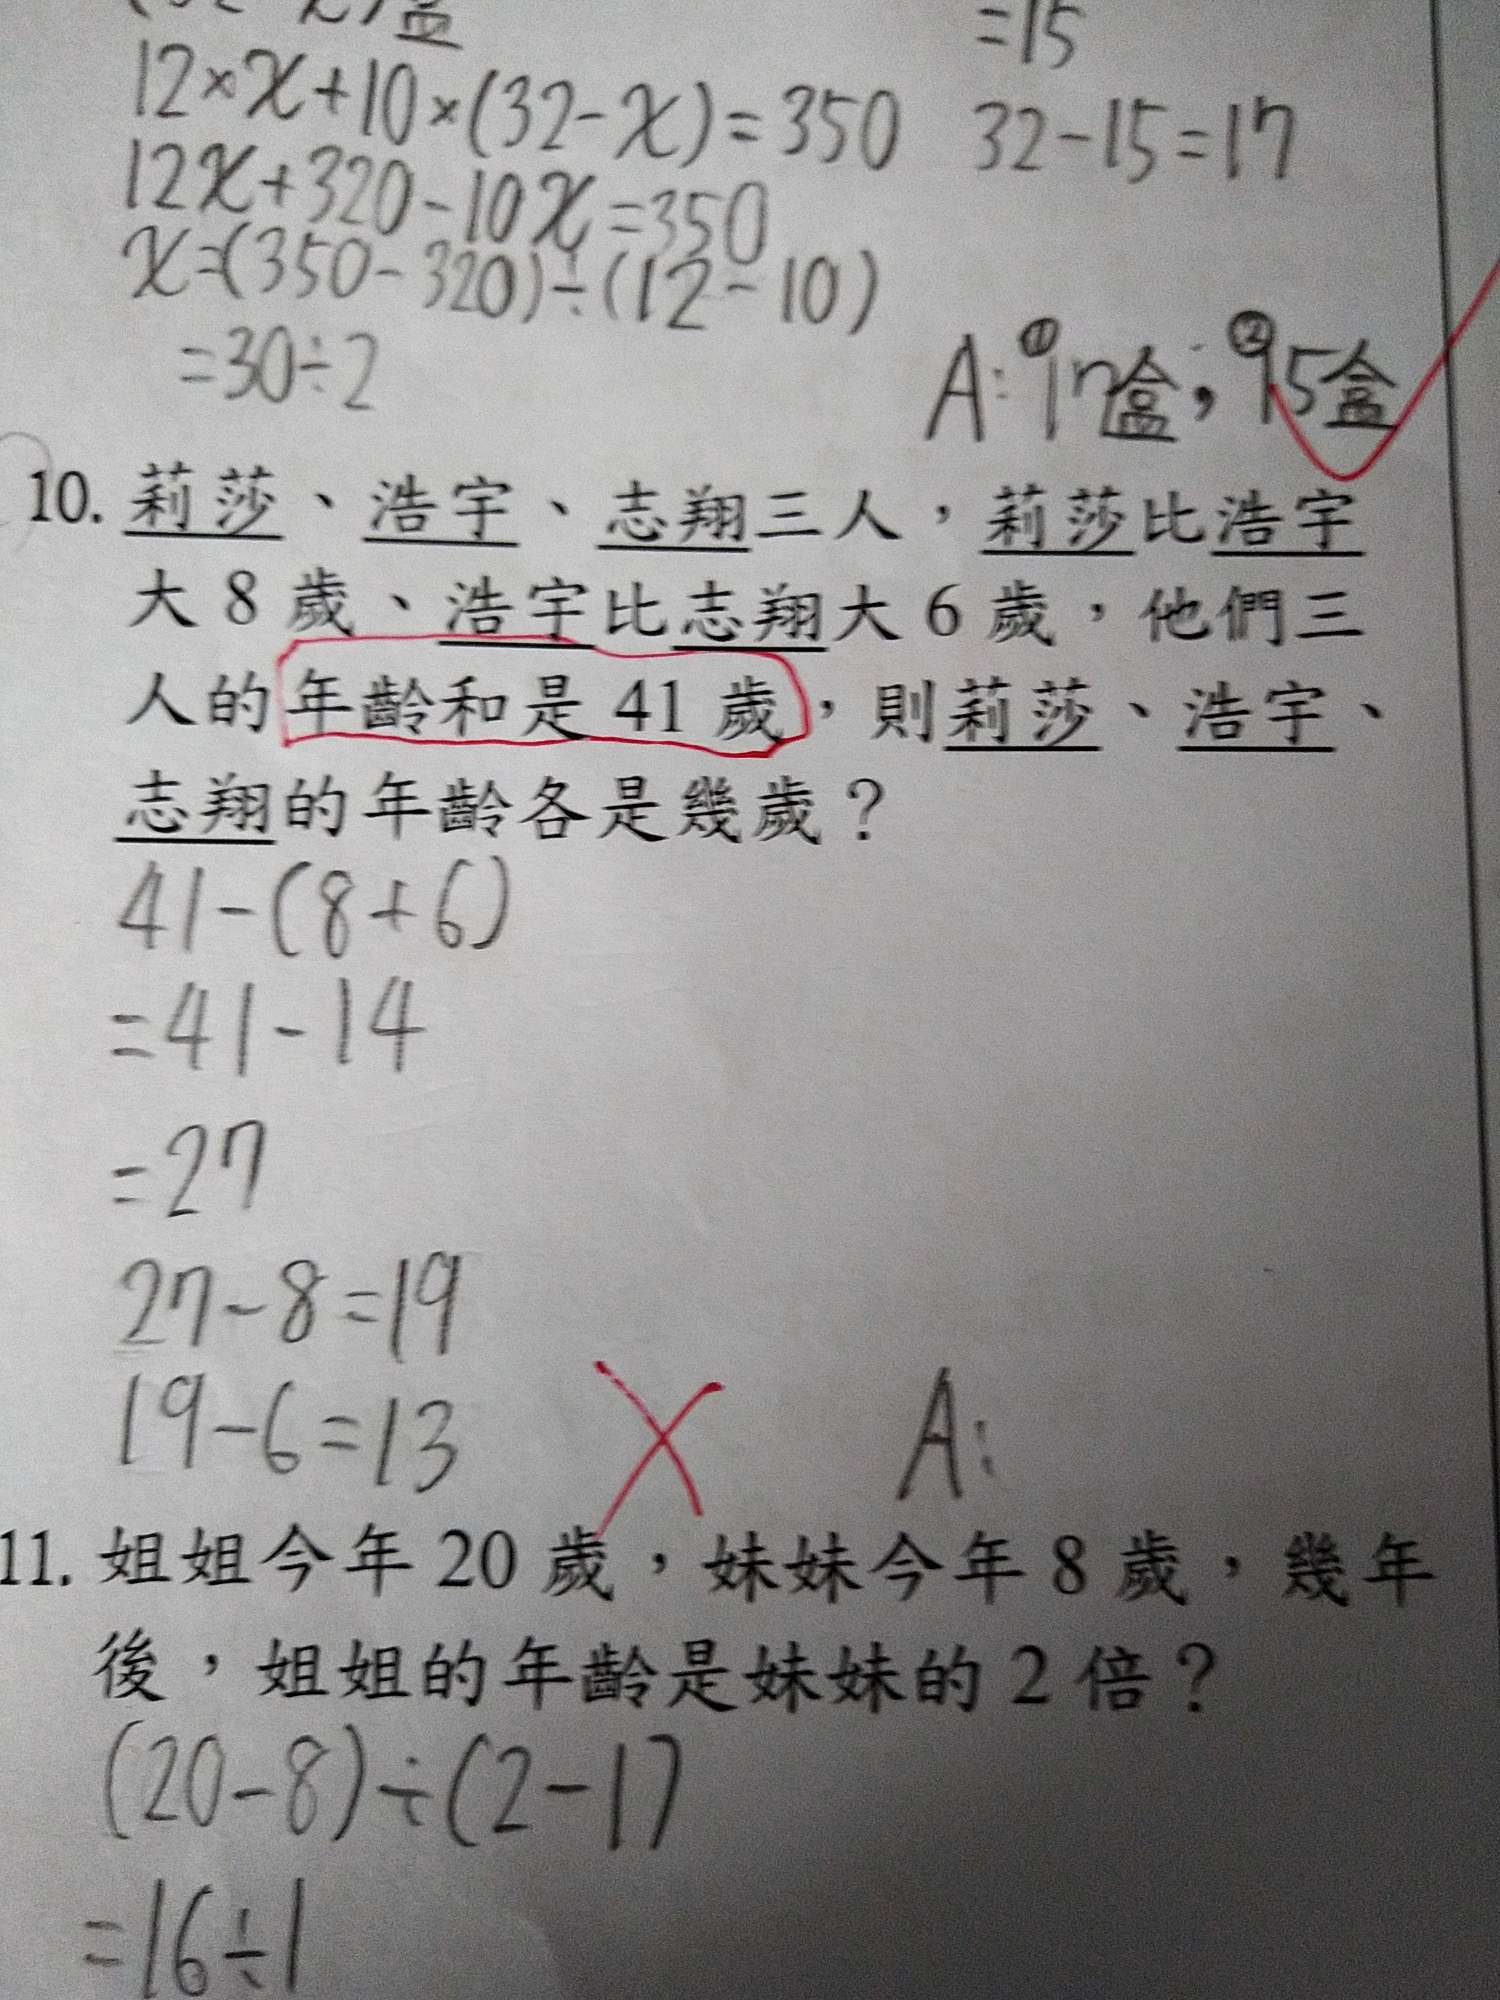 盒
=15
12×x+10×(32-x)=350
32-15=17
12x+320-10x=350
x=(350-320)÷(12-10)
=30÷2
A:①17盒;②15盒
10. 莉莎、浩宇、志翔三人，莉莎比浩宇
大 8 歲、浩宇比志翔大 6 歲，他們三
人的年齡和是 41 歲，則莉莎、浩宇、
志翔的年齡各是幾歲？
41-(8+6)
=41-14
=27
27-8=19
19-6=13
A:
11. 姐姐今年 20 歲，妹妹今年 8 歲，幾年
後，姐姐的年齡是妹妹的 2 倍？
(20-8)÷(2-1)
=16÷1